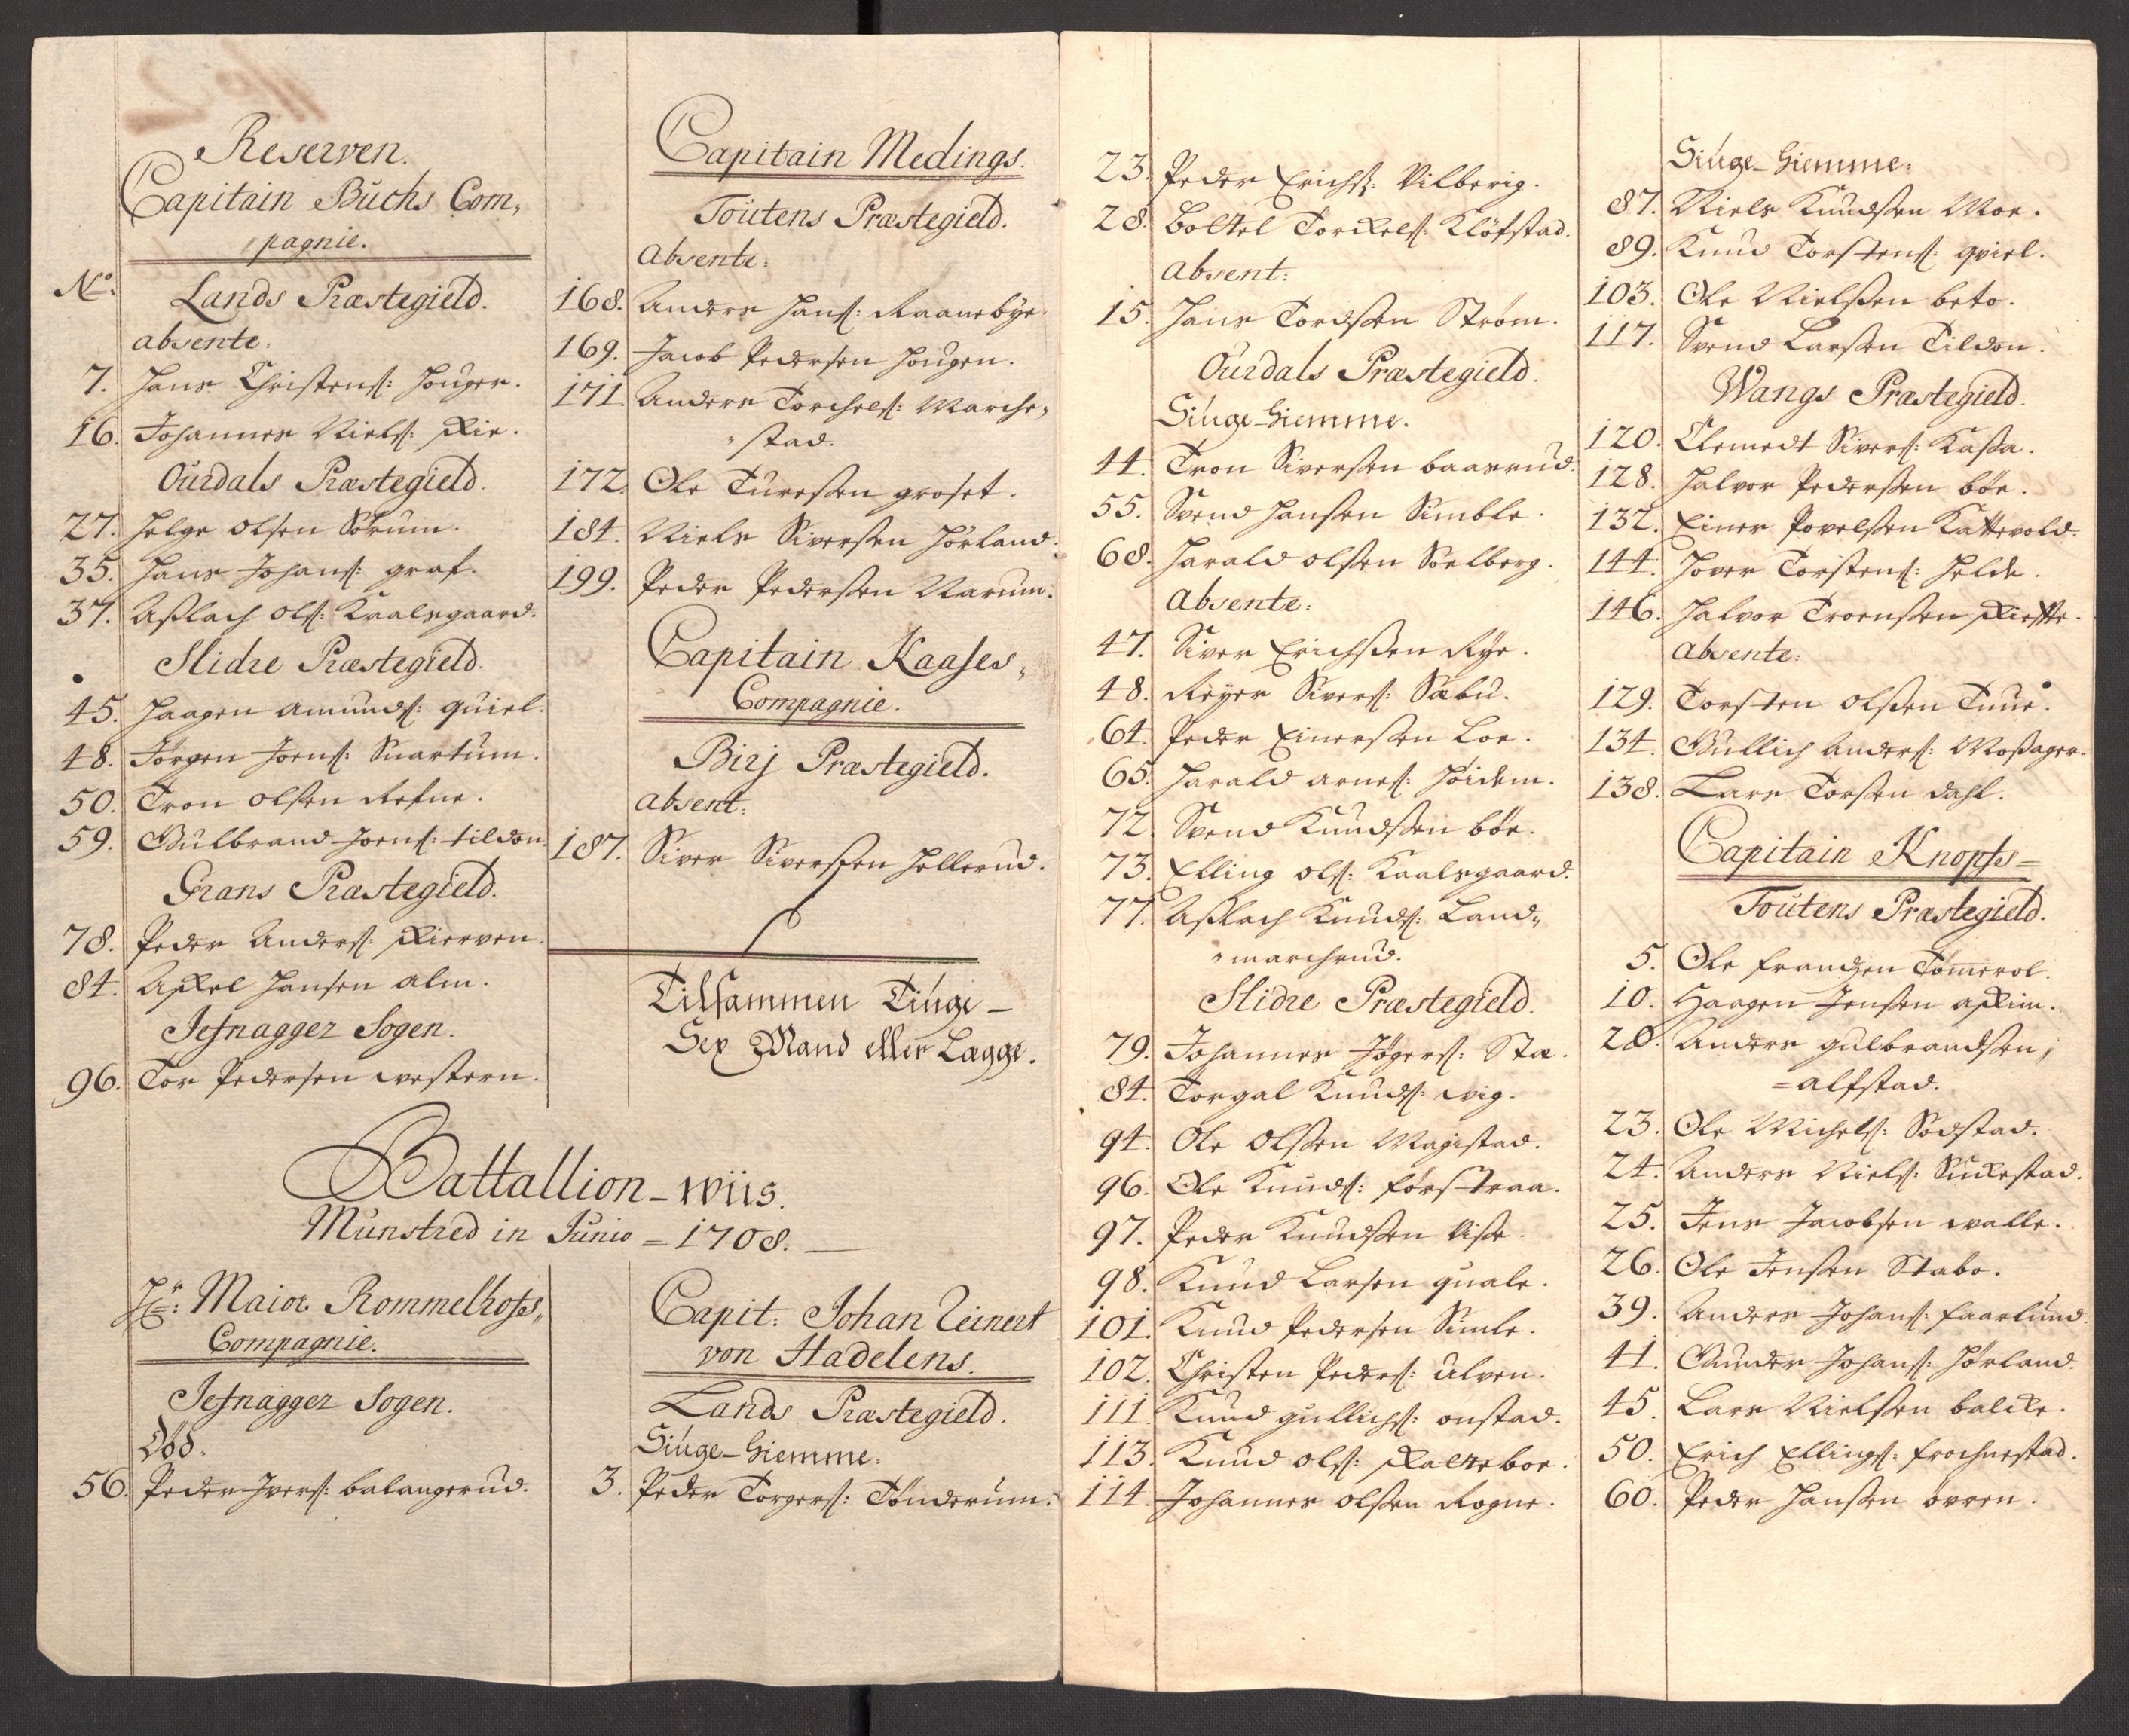 Reserven.
Capitain Buchs Com,
pagnie.
No:
Lands Præstegield.
absente.
7. Hans Christens: Houger.
16. Johannes Niels: Rie.
Ourdals Præstegield.
27. Helge Olsen Sorum.
35. Hans Johans: graf.
37. Aslach Ols: Kaalsgaard.
Slidre Præstegield.
45. Haagen Amunds: quiel.
48. Jørgen Joens: Snartum.
50. Tron Olssen Refne.
59. Gulbrand Joens: tildon.
Grans Præstegield.
78. Peder Anders: Kierven.
84. Axel Hansen alm.
Jefnagger Sogen.
96. Tor Pedersen western.
Capitain Medings.
Toutens Præstegield.
Absente:
168. Anders Hans: Raanebye.
169. Jacob Pedersen Hougen.
171. Anders Torchels: Marche,
stad.
172. Ole Turessen groset.
184. Niels Siverssen Hørland.
199. Peder Pederssen Narum.
Capitain Kaases,
Compagnie.
Birj Præstegield.
absent:
187. Siver Siverssen Hellerud.
Tilsammen Tiuge-
Sex Mand eller Lægge.
Battallion-wiis.
Munstred in Junio - 1708.
Hr: Maior Rommelhofs,
Compagnie.
Jefnagger Sogen.
Død.
56. Peder Ivers: balangerud.
Capit: Johan Reinert
von Hadelens.
Lands Præstegield.
Siuge-hiemme.
3. Peder Torgers: Tønderum.
23. Peder Erichs: Vilberig.
28. Boltel Torkels: Kløfstad.
Absent:
15. Hans Tordssen Strøm.
Ourdals Præstegield.
Siuge-hiemme.
44. Tron Siverssen baasrud.
55. Svend Hanssen Simble.
68. Harald Olssen Soelberg.
Absente:
47. Siver Erichssen Rye.
48. Reyer Sivers: Sæbu.
64. Peder Einerssen Loe.
65. Harald Arnes: Høidem.
72. Svend Knudssen bøe.
73. Elling Ols: Kaalsgaard.
77. Aslach Knuds: Land,
marchrud.
Slidre Præstegield.
79. Johannes Jøgers: Stæ.
84. Torgal Knuds: wig.
94. Ole Olssen Magistad.
96. Ole Knuds: førstraa.
97. Peder Knudssen Visse.
98. Knud Larsen quale.
101. Knud Pedersen Simle.
102. Christen Peders: Ulven.
111. Knud gullichs: onstad.
113. Knud Ols: Kalteboe.
114. Johannes Olssen Rogne.
Siuge-hiemme:
87. Niels Knudssen Moe.
89. Knud Torstens: qviel.
103. Ole Nielssen beto.
117. Svend Larssen Tildon.
Wangs Præstegield.
120. Clemedt Sivers: Kassa.
128. Halvor Pederssen bøe.
132. Einer Povelssen Kattevold.
144. Hover Torstens: Helde.
146. Halvor Troenssen Kiesste.
Absente:
129. Torsten Olssen Tuue.
134. Gullich Anders: Mossager.
138. Lars Torsten dahl.
Capitain Knopfs=
Toutens Præstegield.
5. Ole Frandzen Tømmerol.
10. Haagen Jenssen askim.
28. Anders gulbrandssen,
=alfstad.
23. Ole Michels: Sodstad.
24. Anders Niels: Suckestad.
25. Jens Jacobsen walle.
26. Ole Jenssen Stabo.
39. Anders Johans: faarlund.
41. Gunder Johans: Hørland.
45. Lars Nielssen balcke.
50. Erich Ellings: frochnestad.
60. Peder Hanssen øvren.